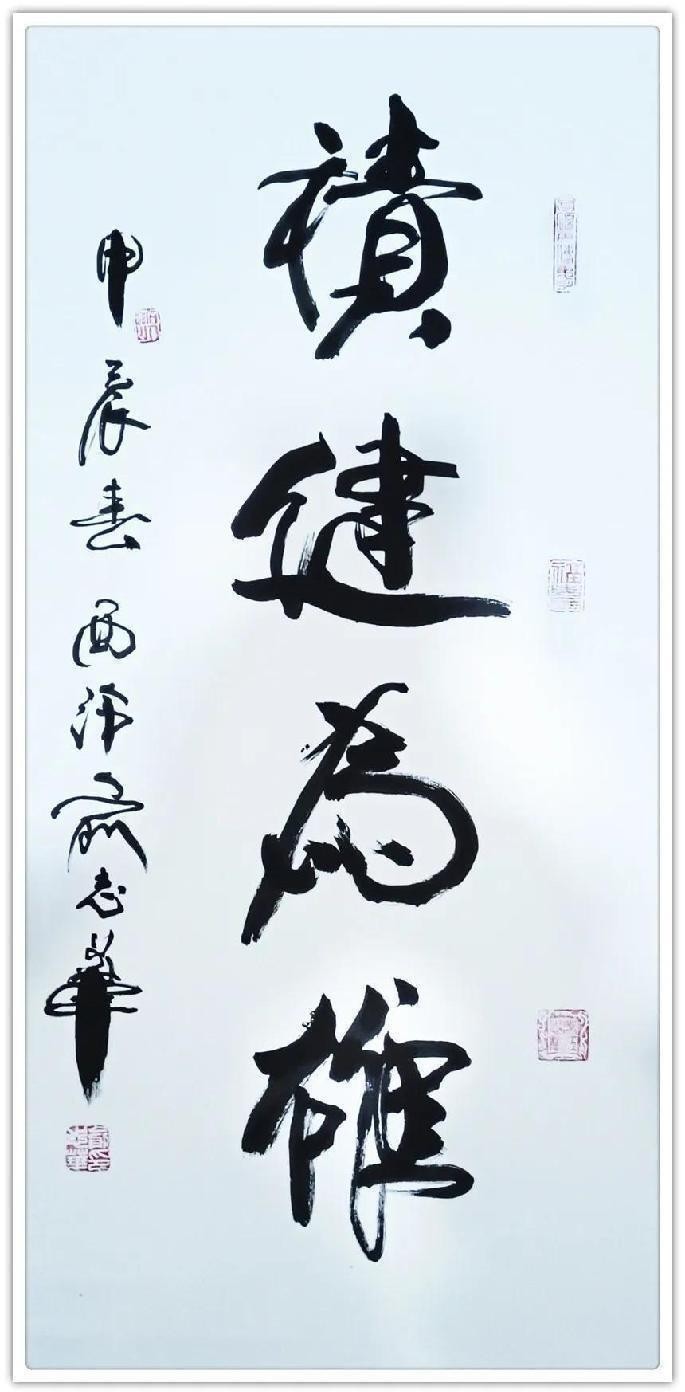 積健為雄
甲辰春西俞志華